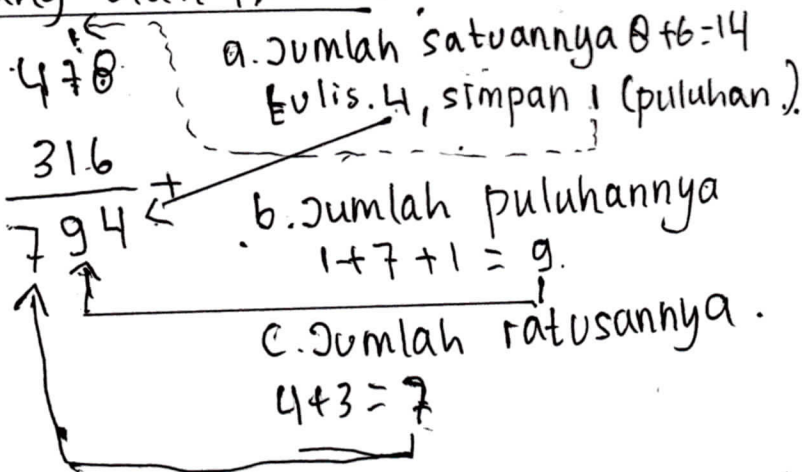 1
478
316
+
794
a. Jumlah satuannya 8+6=14
tulis. 4, simpan 1 (puluhan).
b. Jumlah puluhannya
1+7+1 = 9.
c. Jumlah ratusannya.
4+3=7